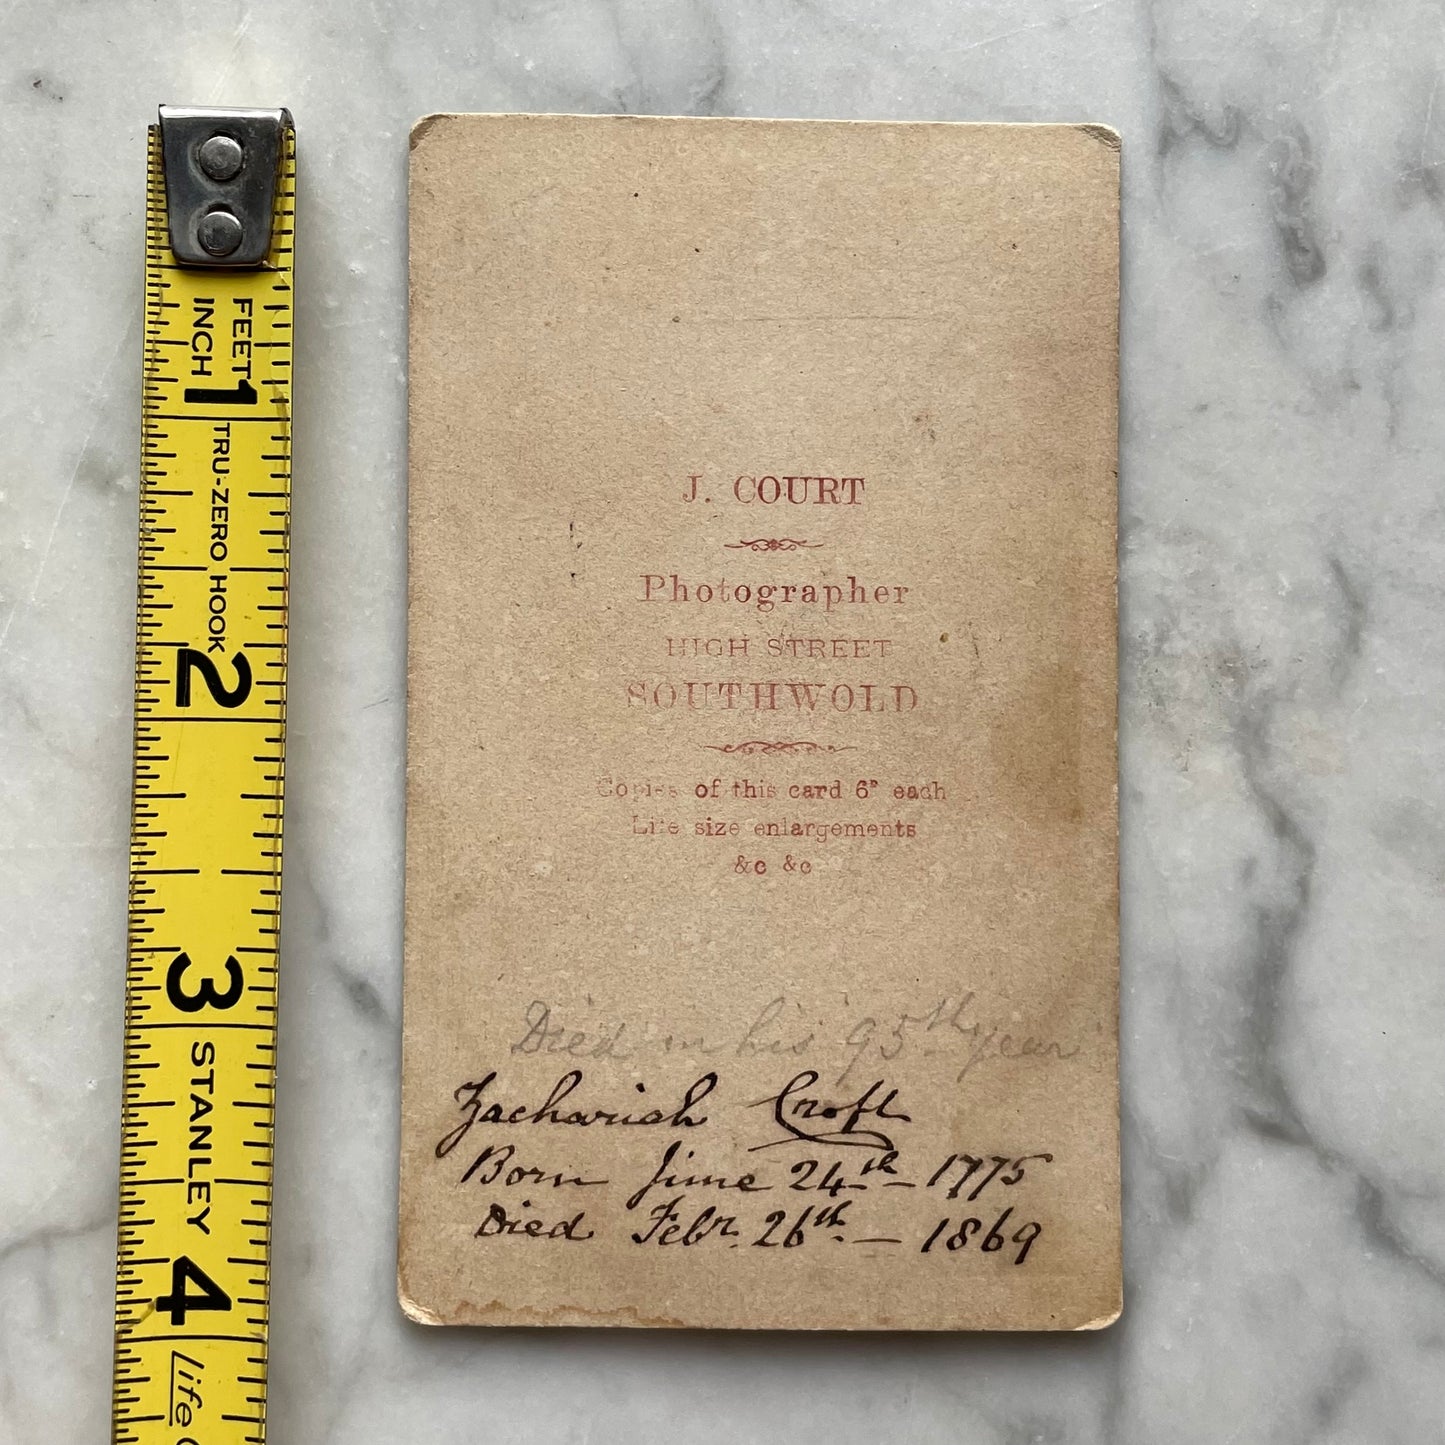 FEET
INCH
1
TRU-ZERO HOOK
2
3
STANLEY
4
Life
J. COURT
Photographer
HIGH STREET
SOUTHWOLD
Copies of this card 6ᴰ each
Life size enlargements
&c &c
Died in his 95th year
Zachariah Croft
Born June 24th – 1775
Died Febr. 26th. – 1869